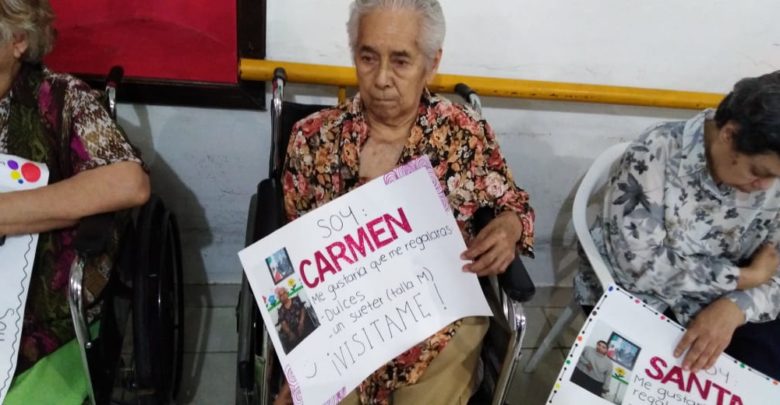 SOY:
CARMEN
Me gustaría que me regalaras
-Dulces
-un suéter (talla M)
¡VISITAME!
SOY:
SANTA
Me gustaría
que me rega